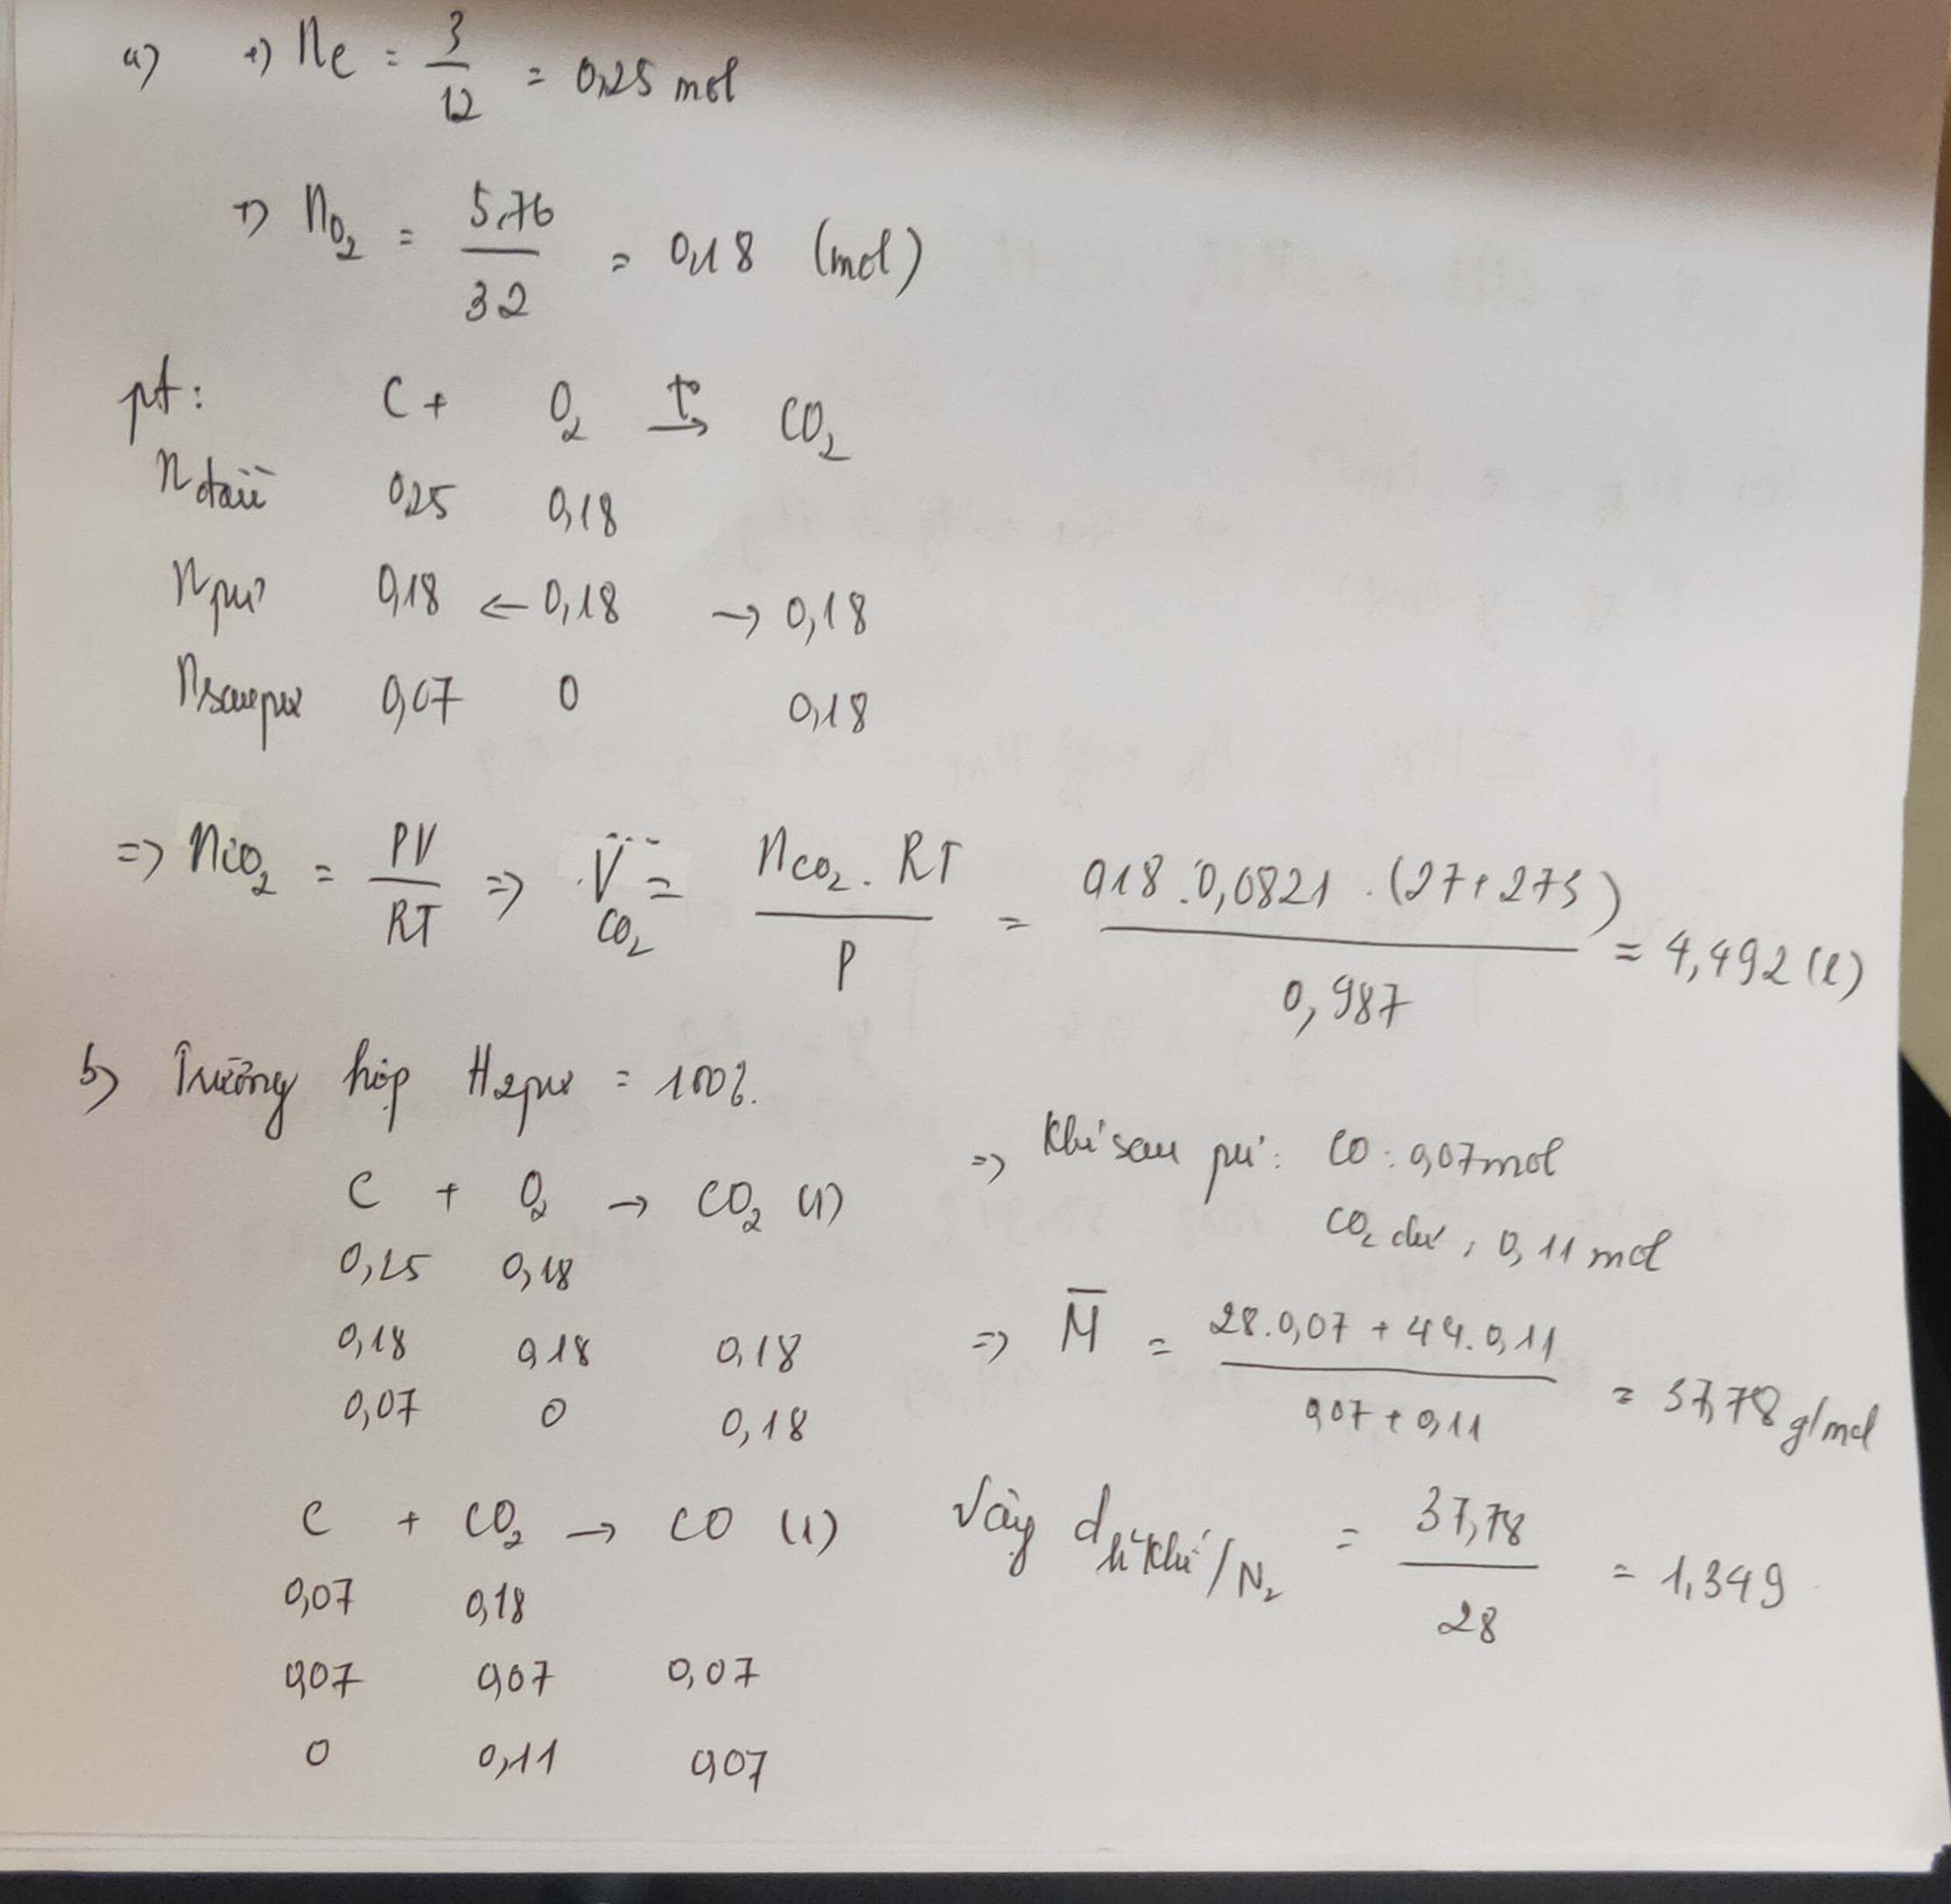 a) +) nC = 3/12 = 0,25 mol
+) nO2 = 5,76/32 = 0,18 (mol)
pt: C + O2 t°→ CO2
n đầu 0,25 0,18
n pư 0,18 ← 0,18 → 0,18
n sau pư 0,07 0 0,18
=> nCO2 = PV/RT => VCO2 = nCO2 . RT / P = 0,18 . 0,0821 . (27+273) / 0,987 = 4,492 (l)
b) Trường hợp H2pư = 100%.
C + O2 → CO2 (1)
0,25 0,18
0,18 0,18 0,18
0,07 0 0,18
C + CO2 → CO (1)
0,07 0,18
0,07 0,07 0,07
0 0,11 0,07
=> Khí sau pư: CO : 0,07 mol
CO2 dư : 0,11 mol
=> M̅ = 28.0,07 + 44.0,11 / 0,07 + 0,11 = 37,78 g/mol
Vậy d h² khí/N2 = 37,78/28 = 1,349